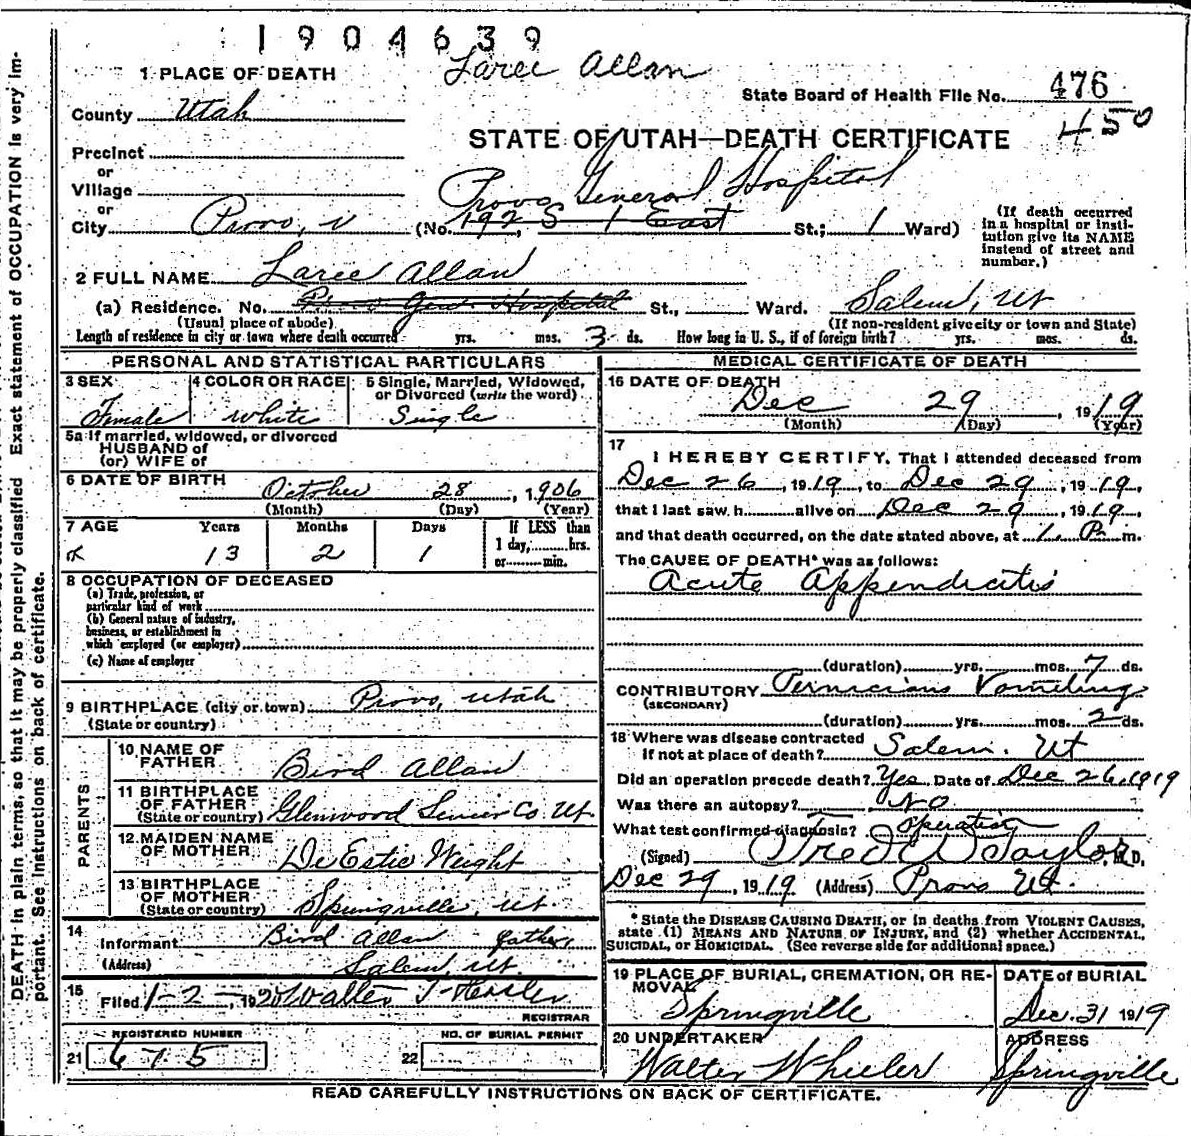 1904639
Laree Allan
1 PLACE OF DEATH
State Board of Health File No. 476
County Utah
450
STATE OF UTAH—DEATH CERTIFICATE
Precinct
or
Village
Provo General Hospital
or
City Provo, U (No. 192 S 1 East St.; 1 Ward)
(If death occurred in a hospital or insti-
tution give its NAME instead of street and number.)
2 FULL NAME Laree Allan
(a) Residence. No. Provo Gen. Hospital St., Ward. Salem, Ut
(Usual place of abode) (If non-resident give city or town and State)
Length of residence in city or town where death occurred yrs. mos. 3 ds. How long in U. S., if of foreign birth? yrs. mos. ds.
PERSONAL AND STATISTICAL PARTICULARS
3 SEX 4 COLOR OR RACE 5 Single, Married, Widowed, or Divorced (write the word)
Female White Single
5a If married, widowed, or divorced
HUSBAND of
(or) WIFE of
6 DATE OF BIRTH October 28, 1906
(Month) (Day) (Year)
7 AGE Years Months Days If LESS than
13 2 1 1 day, hrs.
or min.
8 OCCUPATION OF DECEASED
(a) Trade, profession, or
particular kind of work
(b) General nature of industry,
business, or establishment in
which employed (or employer)
(c) Name of employer
9 BIRTHPLACE (city or town) Provo, Utah
(State or country)
PARENTS
10 NAME OF FATHER Bird Allan
11 BIRTHPLACE OF FATHER (State or country) Glenwood Sevier Co. Ut.
12 MAIDEN NAME OF MOTHER DeEstie Weight
13 BIRTHPLACE OF MOTHER (State or country) Springville, Ut.
14 Informant Bird Allan father
(Address) Salem, Ut.
15 Filed 1-2-, 1920 Walter T
REGISTRAR
REGISTERED NUMBER NO. OF BURIAL PERMIT
21 675 22
MEDICAL CERTIFICATE OF DEATH
16 DATE OF DEATH
Dec 29, 1919
(Month) (Day) (Year)
17
I HEREBY CERTIFY, That I attended deceased from
Dec 26, 1919, to Dec 29, 1919,
that I last saw h alive on Dec 29, 1919,
and that death occurred, on the date stated above, at 1. P. m.
The CAUSE OF DEATH* was as follows:
Acute Appendicitis
(duration) yrs. mos. 7 ds.
CONTRIBUTORY Pernicious Vomiting
(SECONDARY)
(duration) yrs. mos. 2 ds.
18 Where was disease contracted
if not at place of death? Salem. Ut
Did an operation precede death? Yes Date of Dec 26, 1919
Was there an autopsy? No
What test confirmed diagnosis? Operation
(Signed) Fred W Taylor, M. D.
Dec 29, 1919 (Address) Provo Ut.
* State the DISEASE CAUSING DEATH, or in deaths from VIOLENT CAUSES,
state (1) MEANS AND NATURE OF INJURY, and (2) whether ACCIDENTAL,
SUICIDAL, or HOMICIDAL. (See reverse side for additional space.)
19 PLACE OF BURIAL, CREMATION, OR RE-
MOVAL
Springville
DATE of BURIAL
Dec. 31 1919
20 UNDERTAKER
Walter Wheeler
ADDRESS
Springville
READ CAREFULLY INSTRUCTIONS ON BACK OF CERTIFICATE.
DEATH in plain terms, so that it may be properly classified Exact statement of OCCUPATION is very im-
portant. See instructions on back of certificate.